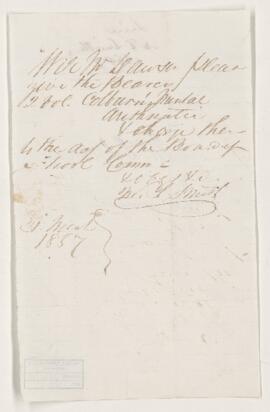 Will Mr Lawson please
give the Bearer
12 vol Colburn's Mental
Arithmetic
& charge the
to the acct of the Board of
School Comn
& oblige &c
Smith
1857